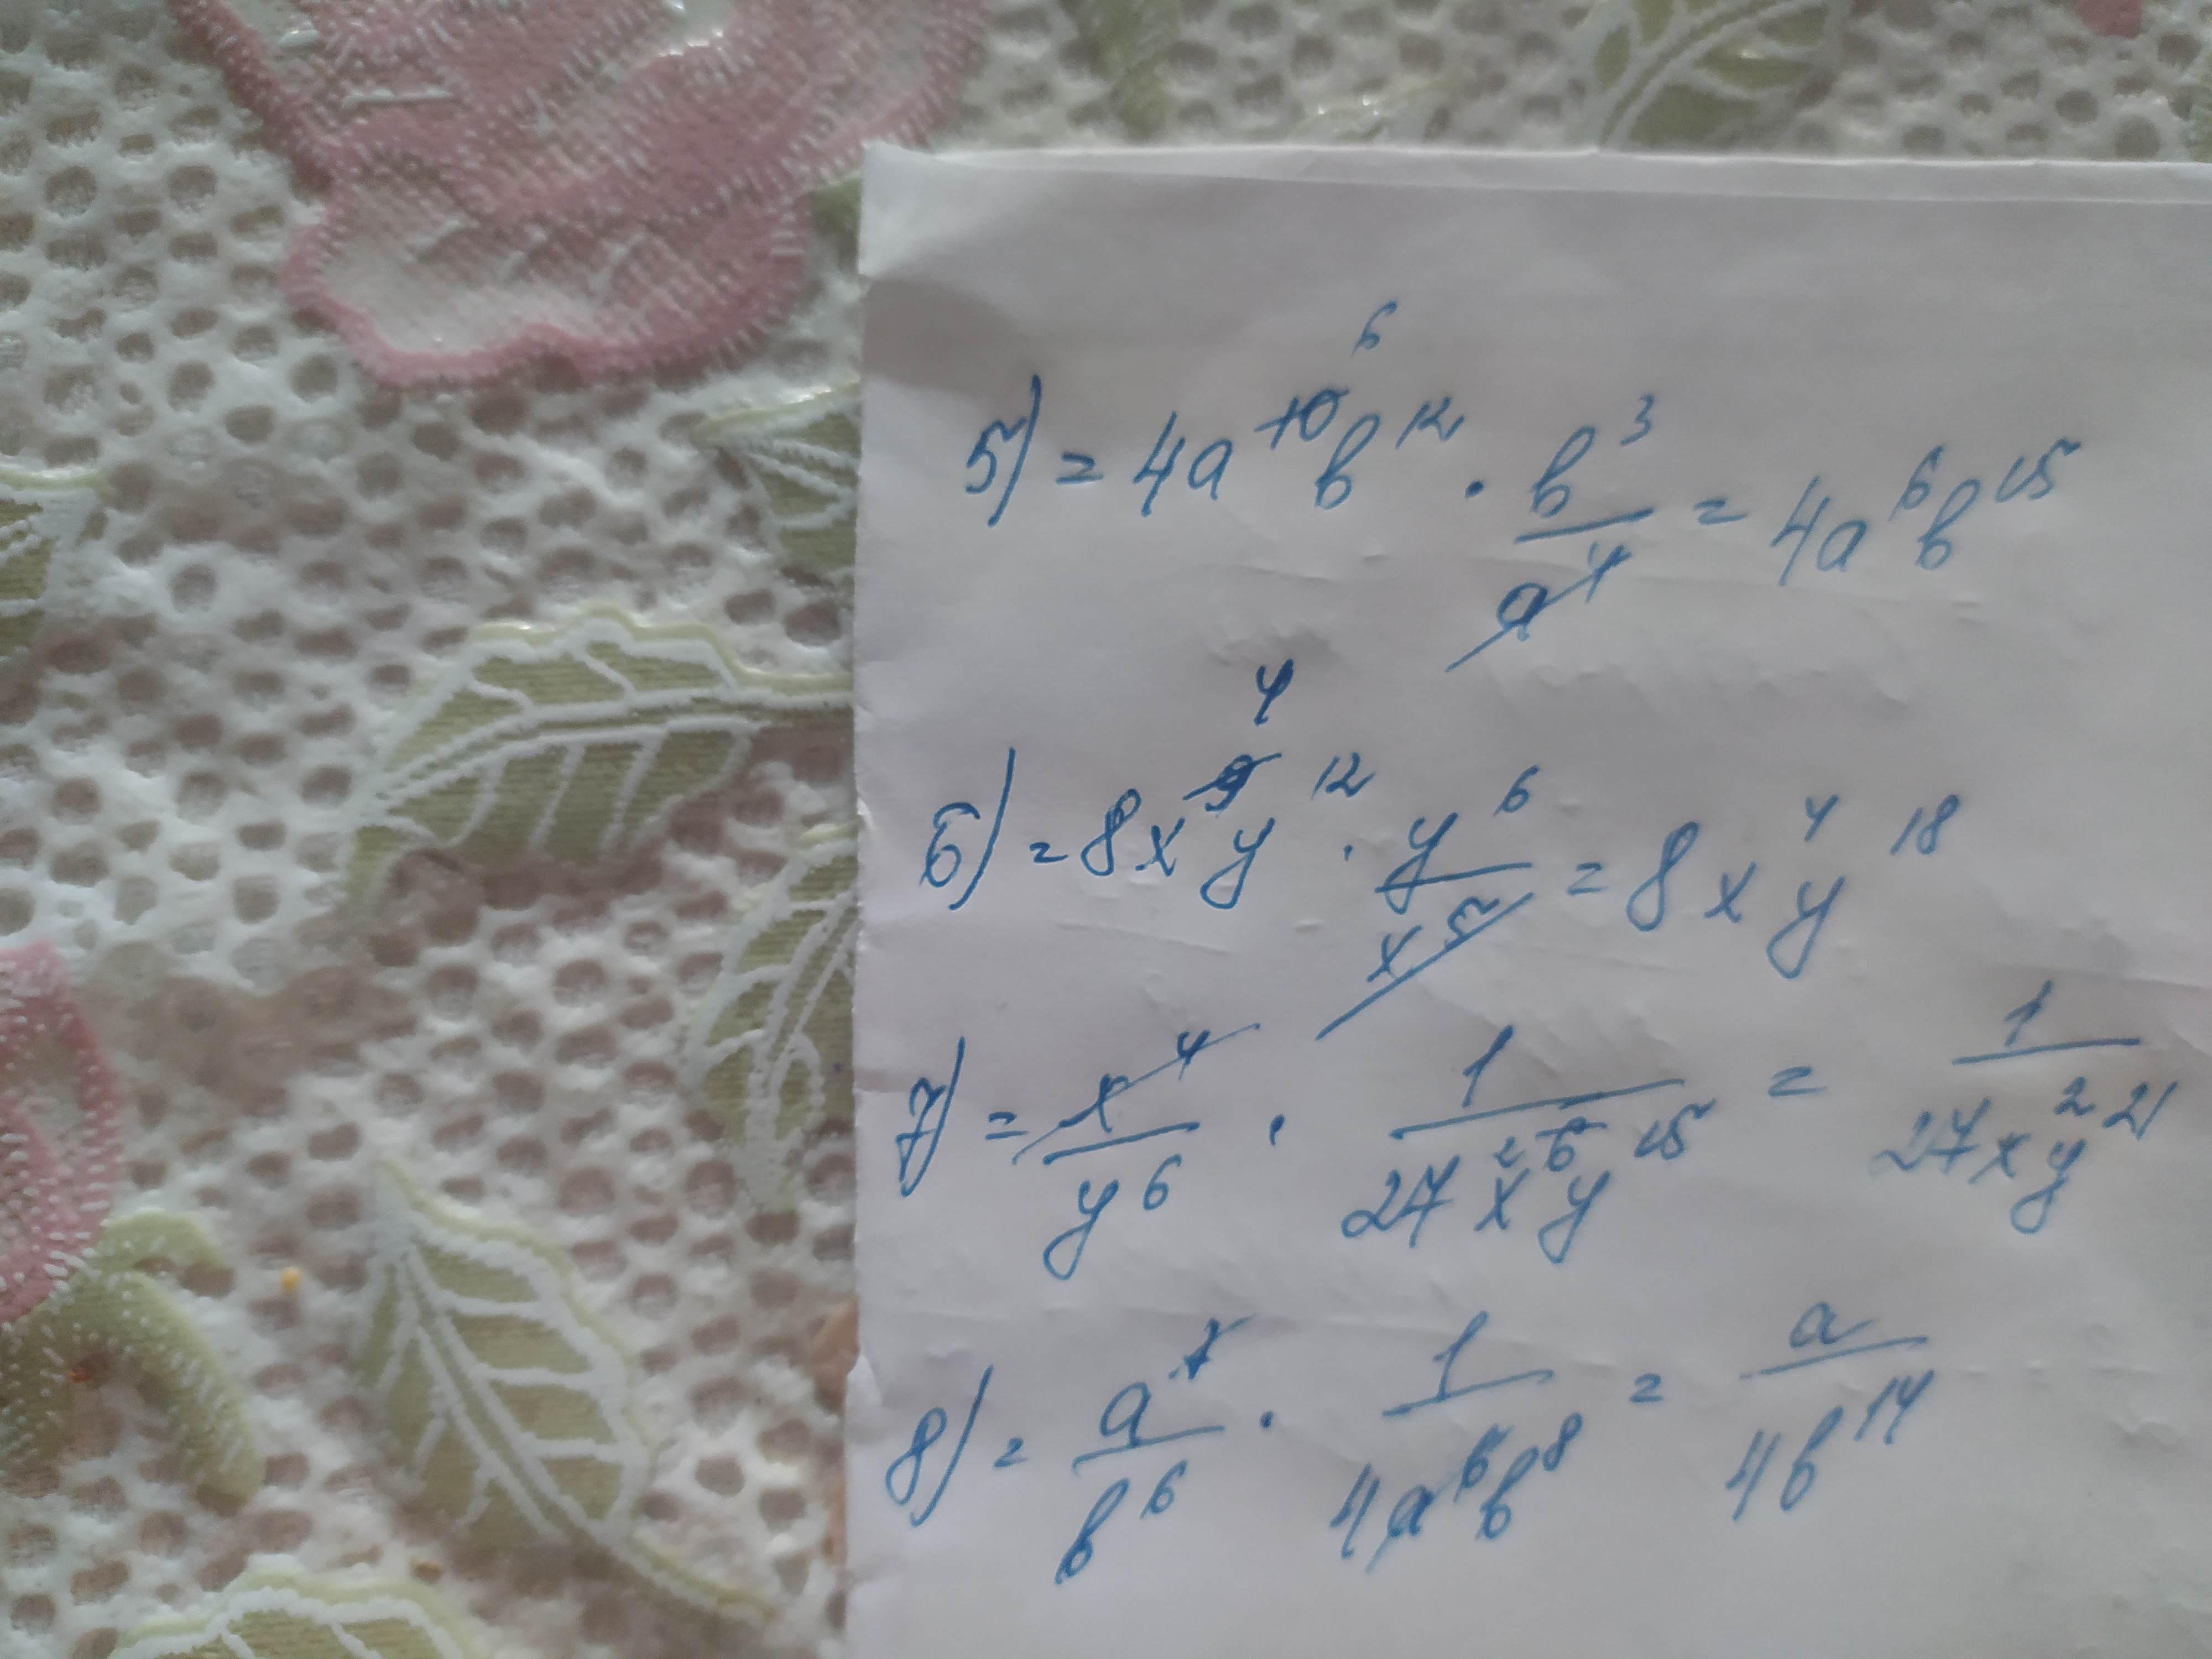 5) = 4a^10 6 b^12 · b^3/a^4 = 4a^6 b^15
6) = 8x^9 4 y^12 · y^6/x^5 = 8x^4 y^18
7) = x^4/y^6 · 1/27x^2 6 y^15 = 1/27x^2 y^21
8) = a^7/b^6 · 1/4a^6 b^8 = a/4b^14